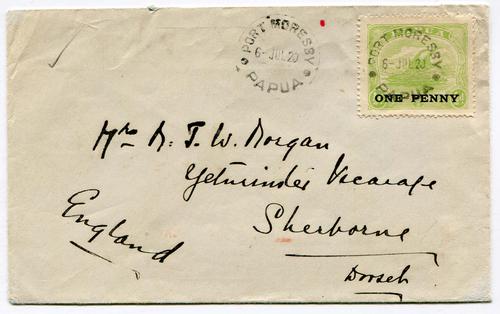 PORT MORESBY
6-JUL 20
PAPUA
PORT MORESBY
6-JUL 20
PAPUA
ONE PENNY
Mrs A. T. W. Morgan
Yetminster Vicarage
Sherborne
Dorset
England